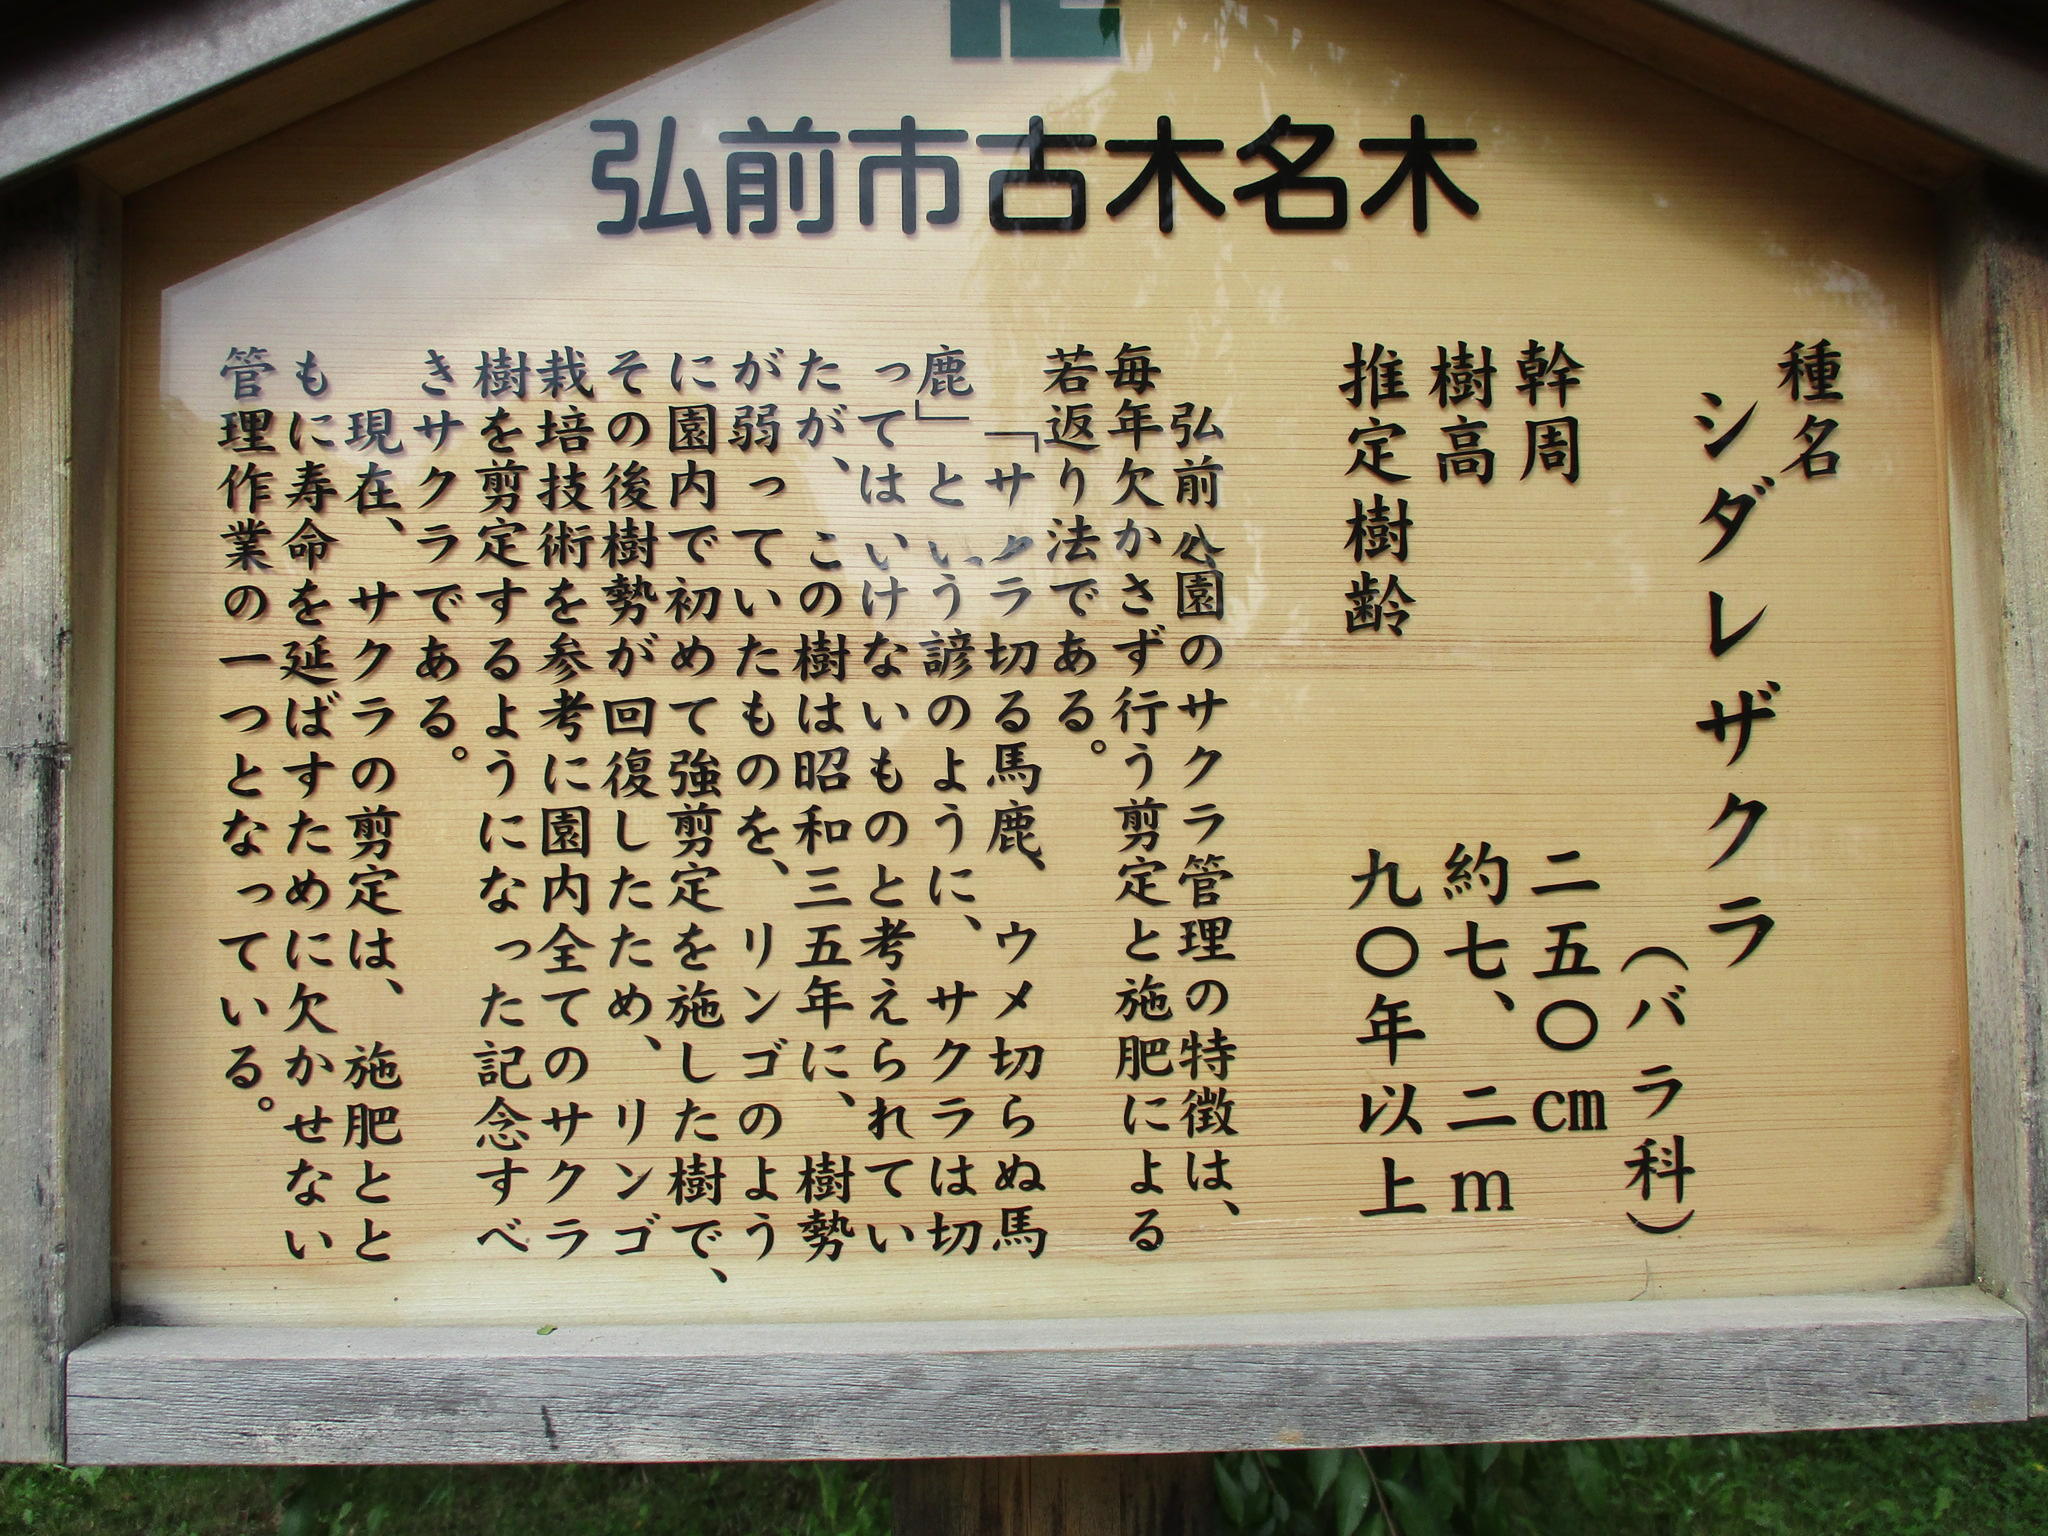 弘前市古木名木
種名
シダレザクラ
（バラ科）
幹周 二五〇cm
樹高 約七、二m
推定樹齢 九〇年以上
弘前公園のサクラ管理の特徴は、
毎年欠かさず行う剪定と施肥による
若返り法である。
「サクラ切る馬鹿、ウメ切らぬ馬
鹿」という諺のように、サクラは切
ってはいけないものと考えられてい
たが、この樹は昭和三五年に、樹勢
が弱っていたものを、リンゴのよう
に園内で初めて強剪定を施した樹で、
その後樹勢が回復したため、リンゴ
栽培技術を参考に園内全てのサクラ
樹を剪定するようになった記念すべ
きサクラである。
現在、サクラの剪定は、施肥とと
もに寿命を延ばすために欠かせない
管理作業の一つとなっている。